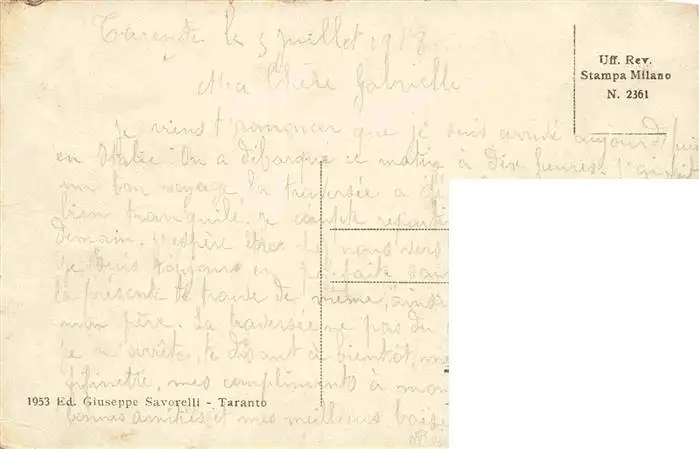 Tarente le 5 juillet 1918
Uff. Rev.
Stampa Milano
N. 2361
Ma Chère Gabrielle
Je viens t'annoncer que je suis arrivé aujourd'hui
en Italie. On a débarqué ce matin à dix heures. J'ai fait
un bon voyage la traversée a
bien tranquile. Je compte
demain. J'espère être
Je suis toujours en
la présente te trouve de même, ainsi
mon père. La traversée ne pas du
je m'arrête, te disant à bientôt,
mes compliments à mon
1953 Ed. Giuseppe Savorelli - Taranto
bonnes amitiés et mes meilleurs